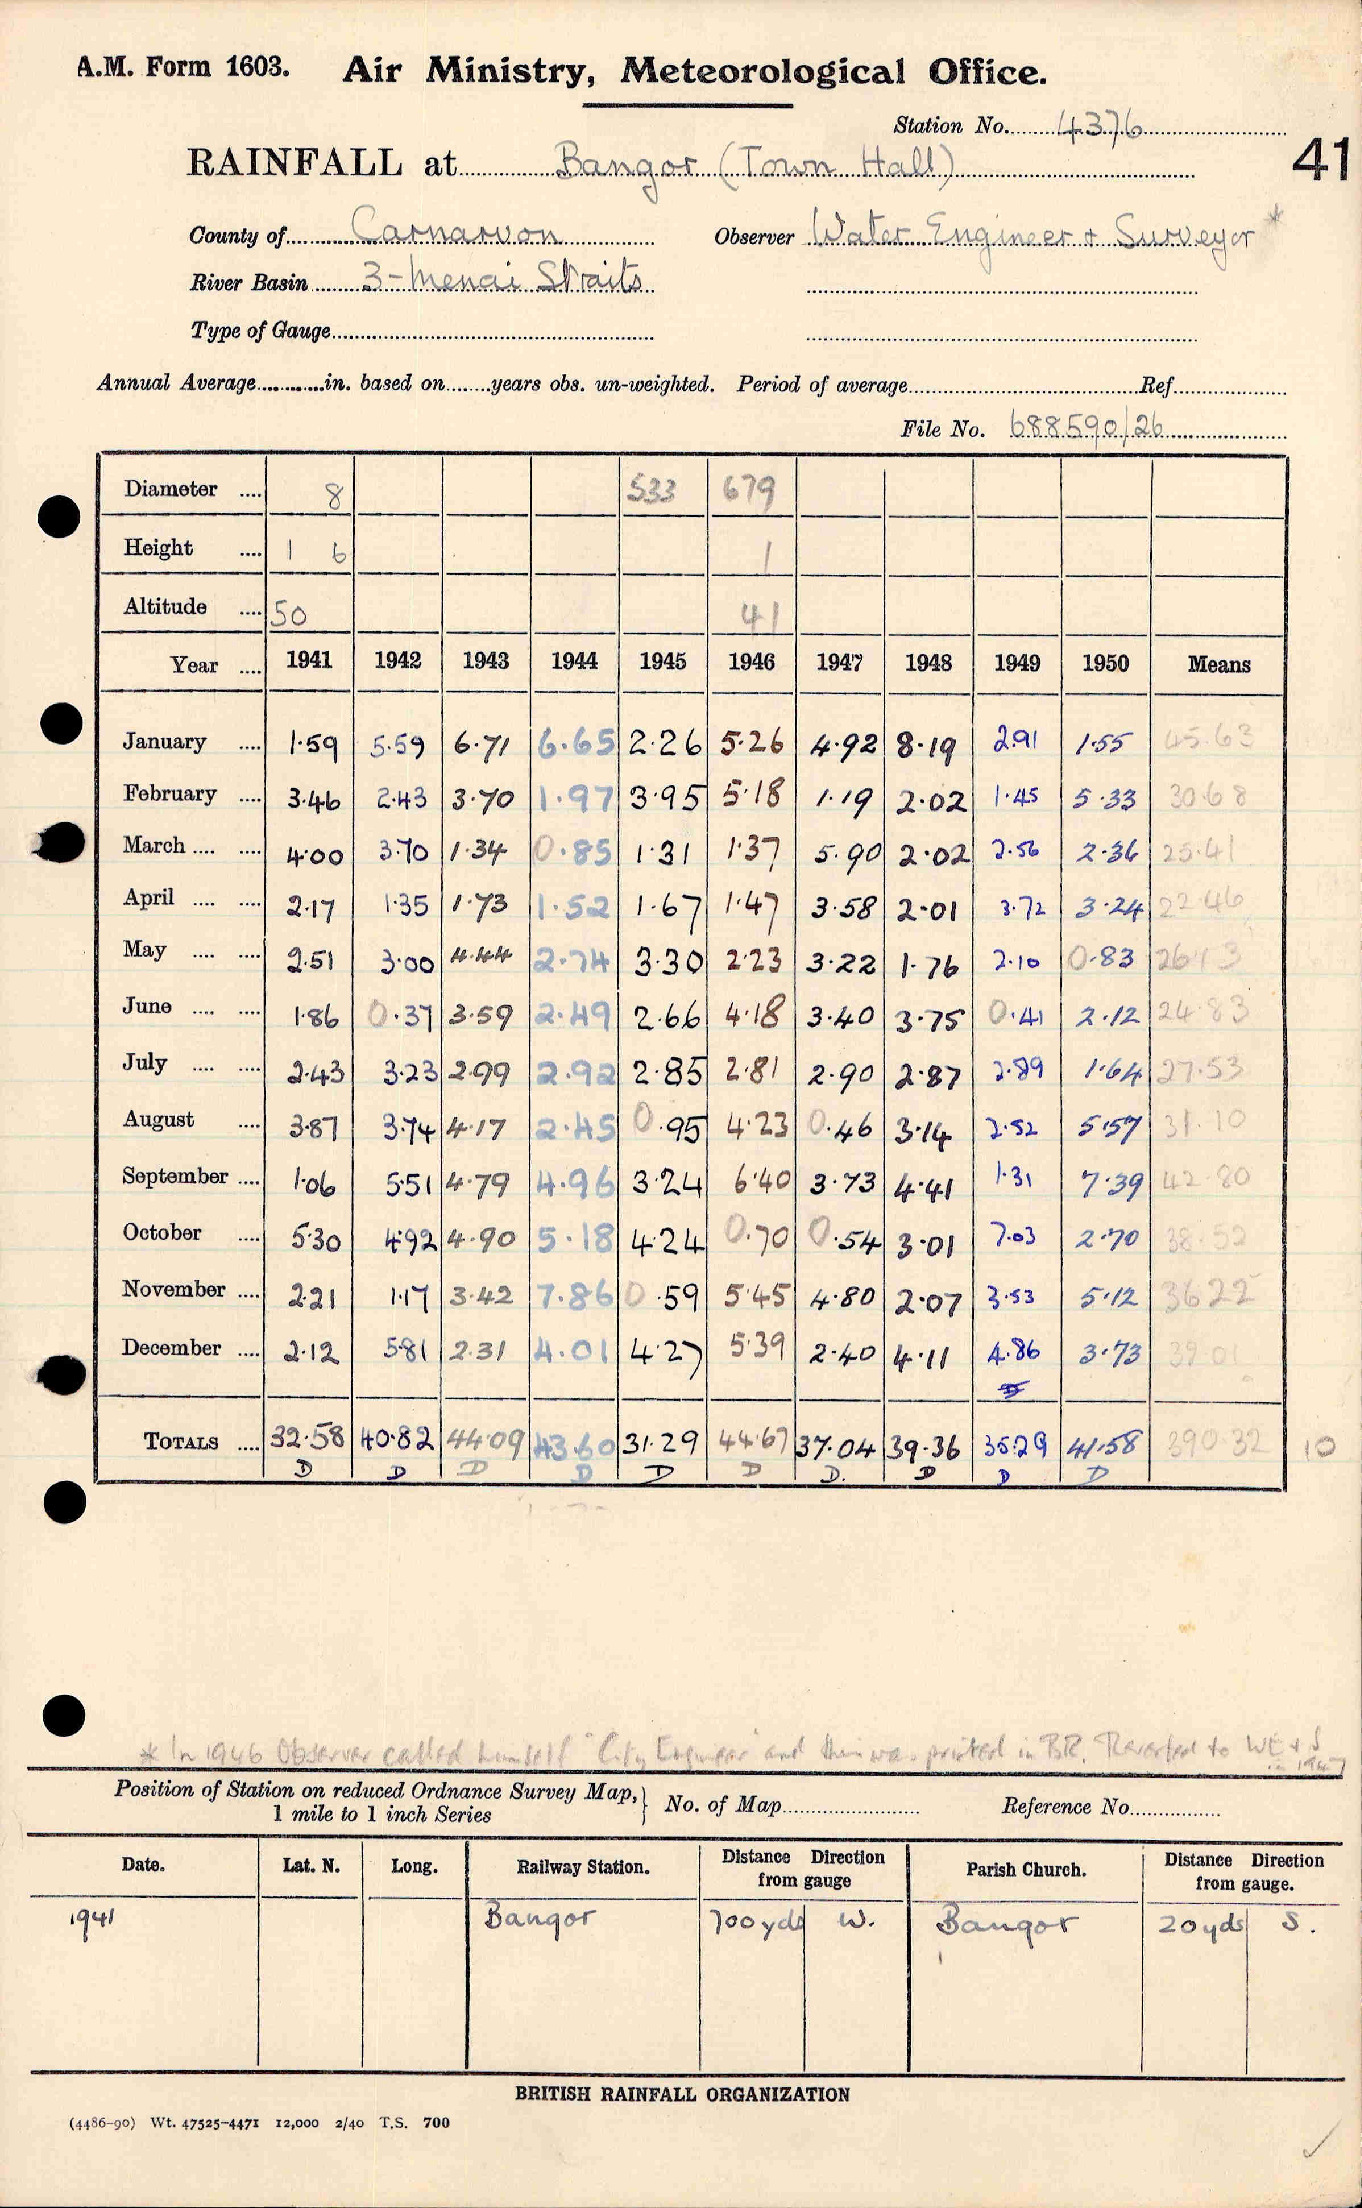 A.M. Form 1603. Air Ministry, Meteorological Office.
Station No. 4376
41
RAINFALL at Bangor (Town Hall)
County of Carnarvon Observer Water Engineer & Surveyor *
River Basin 3-Menai Straits
Type of Gauge
Annual Average in. based on years obs. un-weighted. Period of average Ref
File No. 688590/26
Diameter 8 533 679
Height 1 6 1
Altitude 50 41
Year 1941 1942 1943 1944 1945 1946 1947 1948 1949 1950 Means
January 1.59 5.59 6.71 6.65 2.26 5.26 4.92 8.19 2.91 1.55 45.63
February 3.46 2.43 3.70 1.97 3.95 5.18 1.19 2.02 1.45 5.33 30.68
March 4.00 3.70 1.34 0.85 1.31 1.37 5.90 2.02 2.56 2.36 25.41
April 2.17 1.35 1.73 1.52 1.67 1.47 3.58 2.01 3.72 3.24 22.46
May 2.51 3.00 4.44 2.74 3.30 2.23 3.22 1.76 2.10 0.83 26.13
June 1.86 0.37 3.59 2.49 2.66 4.18 3.40 3.75 0.41 2.12 24.83
July 2.43 3.23 2.99 2.92 2.85 2.81 2.90 2.87 2.89 1.64 27.53
August 3.87 3.74 4.17 2.45 0.95 4.23 0.46 3.14 2.52 5.57 31.10
September 1.06 5.51 4.79 4.96 3.24 6.40 3.73 4.41 1.31 7.39 42.80
October 5.30 4.92 4.90 5.18 4.24 0.70 0.54 3.01 7.03 2.70 38.52
November 2.21 1.17 3.42 7.86 0.59 5.45 4.80 2.07 3.53 5.12 36.22
December 2.12 5.81 2.31 4.01 4.27 5.39 2.40 4.11 4.86 3.73 39.01
TOTALS 32.58 40.82 44.09 43.60 31.29 44.67 37.04 39.36 35.29 41.58 390.32 10
D D D D D D D. D D D
* In 1946 Observer called himself "City Engineer" and this was printed in B.R. Reverted to WE & S in 1947
Position of Station on reduced Ordnance Survey Map, 1 mile to 1 inch Series } No. of Map Reference No.
Date. Lat. N. Long. Railway Station. Distance Direction from gauge Parish Church. Distance Direction from gauge.
1941 Bangor 700 yds W. Bangor 20 yds S.
BRITISH RAINFALL ORGANIZATION
(4486-90) Wt. 47525-4471 12,000 2/40 T.S. 700